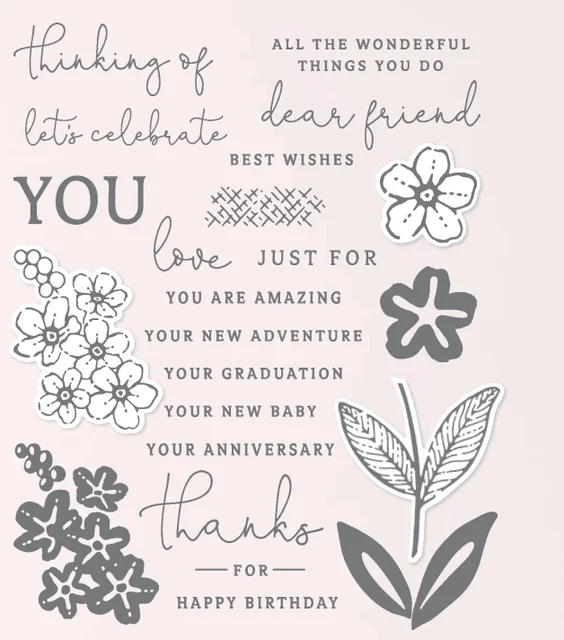 thinking of
ALL THE WONDERFUL
THINGS YOU DO
let's celebrate
dear friend
BEST WISHES
YOU
love
JUST FOR
YOU ARE AMAZING
YOUR NEW ADVENTURE
YOUR GRADUATION
YOUR NEW BABY
YOUR ANNIVERSARY
thanks
FOR
HAPPY BIRTHDAY